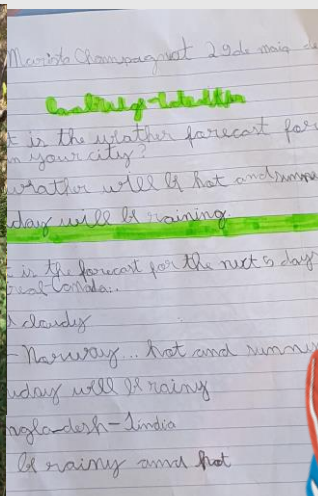 Marista Champagnat 29 de maio de
t is the wather forecast for
n your city?
wrather will be hot and sunn
day will be raining.
t is the forecast for the next 5 day
real-Canada..
cloudy
-Norway... hot and sunny
uday will be rainy
ngla-desh-India
be rainy and hot